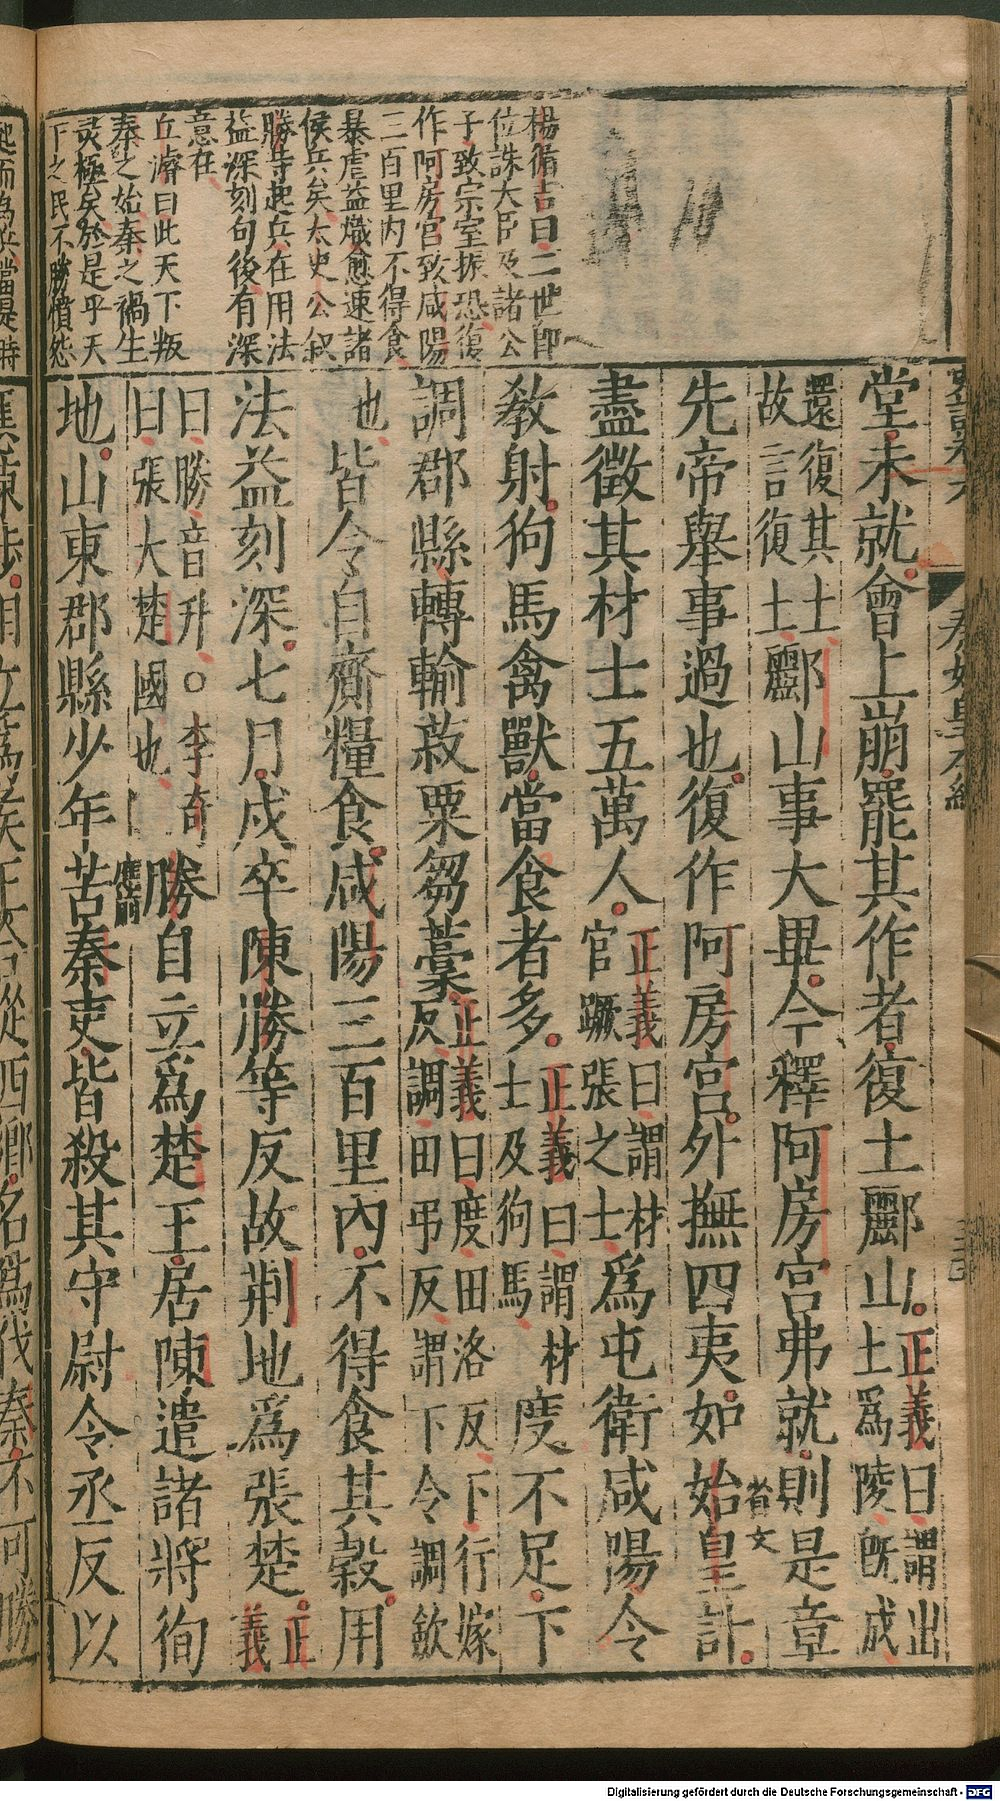 楊循吉曰二世即
位誅大臣及諸公
子致宗室振恐復
作阿房宮致咸陽
三百里內不得食
暴虐益熾愈速諸
侯兵矣太史公叙
勝等起兵在用法
益深刻句後有深
意在
丘濬曰此天下叛
秦之始秦之禍生
灵極矣於是乎天
下之民不勝憤怨
堂未就會上崩罷其作者復土酈山正義曰謂出土爲陵旣成
還復其土故言復土酈山事大畢今釋阿房宮弗就則是章
先帝舉事過也復作阿房宮外撫四夷如始皇計
省文
盡徵其材士五萬人正義曰謂材官蹶張之士爲屯衛咸陽令
教射狗馬禽獸當食者多正義曰謂材士及狗馬度不足下
調郡縣轉輸菽粟芻藁正義曰度田洛反下行嫁反調田弔反謂下令調斂
也皆令自齎糧食咸陽三百里內不得食其穀用
法益刻深七月戍卒陳勝等反故荆地爲張楚正義
曰勝音升○李奇曰張大楚國也勝自立爲楚王居陳遣諸將徇
地山東郡縣少年苦秦吏皆殺其守尉令丞反以
應前
起而爲兵當是時
秦始皇本紀
Digitalisierung gefördert durch die Deutsche Forschungsgemeinschaft - DFG